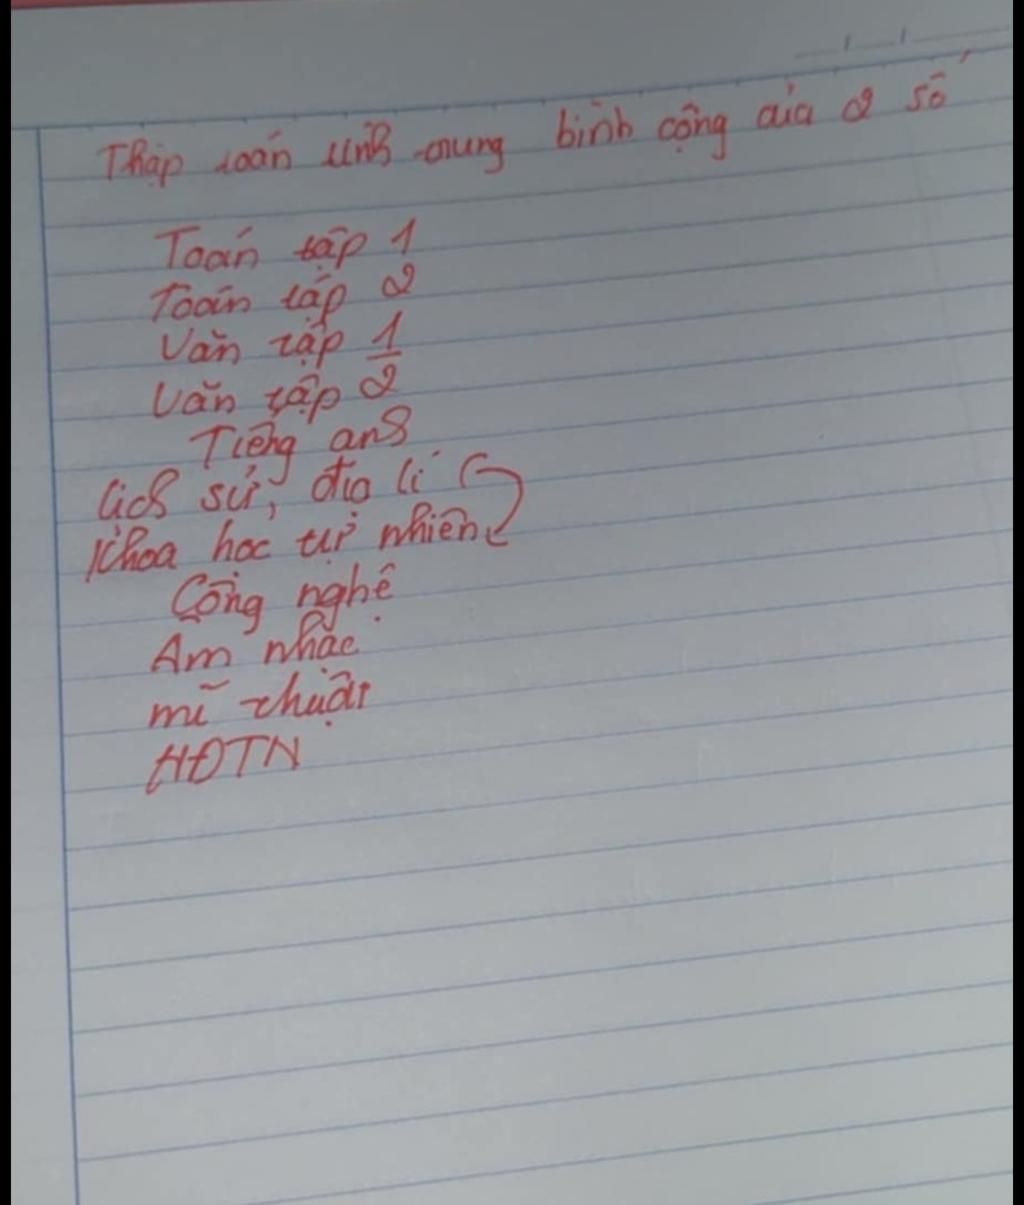 Thập toán tính trung bình cộng của 2 số
Toán tập 1
Toán tập 2
Văn tập 1
Văn tập 2
Tiếng anh
Lịch sử, địa lí
Khoa học tự nhiên
Công nghệ
Âm nhạc
mĩ thuật
HĐTN